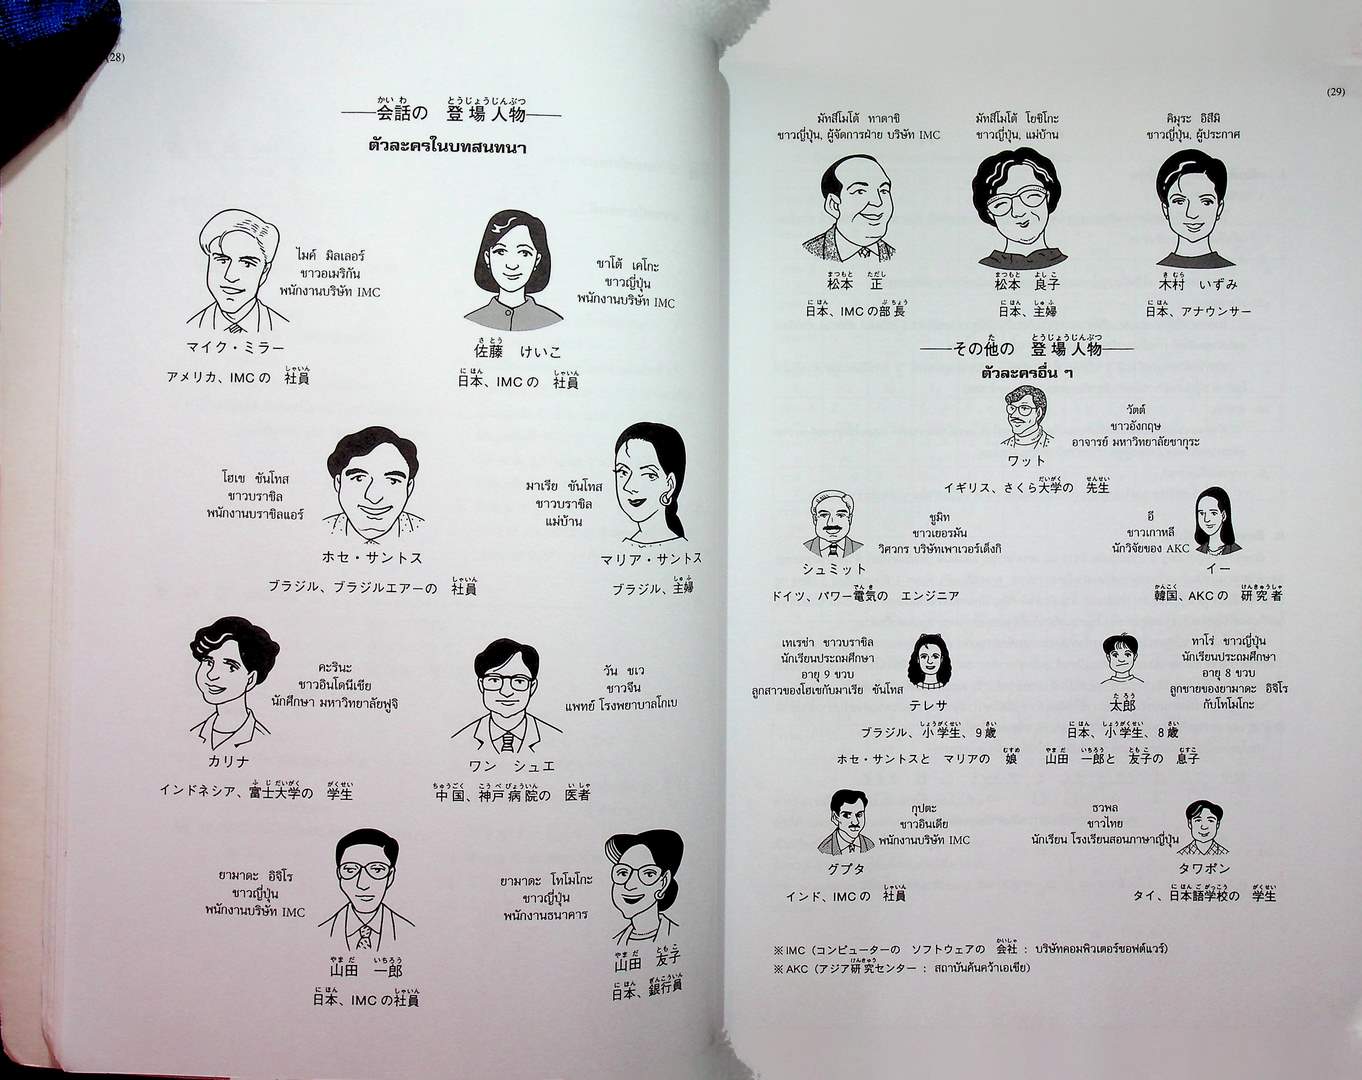 (28)
会話の 登場人物
かいわ とうじょうじんぶつ
ตัวละครในบทสนทนา
ไมค์ มิลเลอร์
ชาวอเมริกัน
พนักงานบริษัท IMC
マイク・ミラー
アメリカ、IMCの 社員
しゃいん
ซาโต้ เคโกะ
ชาวญี่ปุ่น
พนักงานบริษัท IMC
さとう
佐藤 けいこ
にほん しゃいん
日本、IMCの 社員
โฮเซ ซันโทส
ชาวบราซิล
พนักงานบราซิลแอร์
ホセ・サントス
しゃいん
ブラジル、ブラジルエアーの 社員
มาเรีย ซันโทส
ชาวบราซิล
แม่บ้าน
マリア・サントス
しゅふ
ブラジル、主婦
คะรินะ
ชาวอินโดนีเซีย
นักศึกษา มหาวิทยาลัยฟูจิ
カリナ
ふじだいがく がくせい
インドネシア、富士大学の 学生
วัน ซเว
ชาวจีน
แพทย์ โรงพยาบาลโกเบ
ワン シュエ
ちゅうごく こうべびょういん いしゃ
中国、神戸病院の 医者
ยามาดะ อิจิโร
ชาวญี่ปุ่น
พนักงานบริษัท IMC
やまだ いちろう
山田 一郎
にほん しゃいん
日本、IMCの社員
ยามาดะ โทโมโกะ
ชาวญี่ปุ่น
พนักงานธนาคาร
やまだ ともこ
山田 友子
にほん ぎんこういん
日本、銀行員
(29)
มัทสึโมโต้ ทาดาชิ
ชาวญี่ปุ่น, ผู้จัดการฝ่าย บริษัท IMC
まつもと ただし
松本 正
にほん ぶちょう
日本、IMCの部長
มัทสึโมโต้ โยชิโกะ
ชาวญี่ปุ่น, แม่บ้าน
まつもと よしこ
松本 良子
にほん しゅふ
日本、主婦
คิมุระ อิสึมิ
ชาวญี่ปุ่น, ผู้ประกาศ
きむら
木村 いずみ
にほん
日本、アナウンサー
た とうじょうじんぶつ
その他の 登場人物
ตัวละครอื่น ๆ
วัตต์
ชาวอังกฤษ
อาจารย์ มหาวิทยาลัยซากุระ
ワット
だいがく せんせい
イギリス、さくら大学の 先生
ชูมิท
ชาวเยอรมัน
วิศวกร บริษัทเพาเวอร์เด็งกิ
シュミット
でんき
ドイツ、パワー電気の エンジニア
อี
ชาวเกาหลี
นักวิจัยของ AKC
イー
かんこく けんきゅうしゃ
韓国、AKCの 研究者
เทเรซ่า ชาวบราซิล
นักเรียนประถมศึกษา
อายุ 9 ขวบ
ลูกสาวของโฮเซกับมาเรีย ซันโทส
テレサ
しょうがくせい さい
ブラジル、小学生、9歳
むすめ
ホセ・サントスと マリアの 娘
ทาโร่ ชาวญี่ปุ่น
นักเรียนประถมศึกษา
อายุ 8 ขวบ
ลูกชายของยามาดะ อิจิโร
กับโทโมโกะ
たろう
太郎
にほん しょうがくせい さい
日本、小学生、8歳
やまだ いちろう ともこ むすこ
山田 一郎と 友子の 息子
กุปตะ
ชาวอินเดีย
พนักงานบริษัท IMC
グプタ
しゃいん
インド、IMCの 社員
ธวพล
ชาวไทย
นักเรียน โรงเรียนสอนภาษาญี่ปุ่น
タワポン
にほんごがっこう がくせい
タイ、日本語学校の 学生
かいしゃ
※IMC（コンピューターの ソフトウェアの 会社 : บริษัทคอมพิวเตอร์ซอฟต์แวร์）
けんきゅう
※AKC（アジア研究センター : สถาบันค้นคว้าเอเชีย）